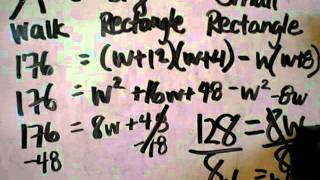 Walk Rectangle Rectangle
176 = (w+12)(w+4) - w(w+8)
176 = w² + 16w + 48 - w² - 8w
176 = 8w + 48
128 = 8w
-48 -48
8